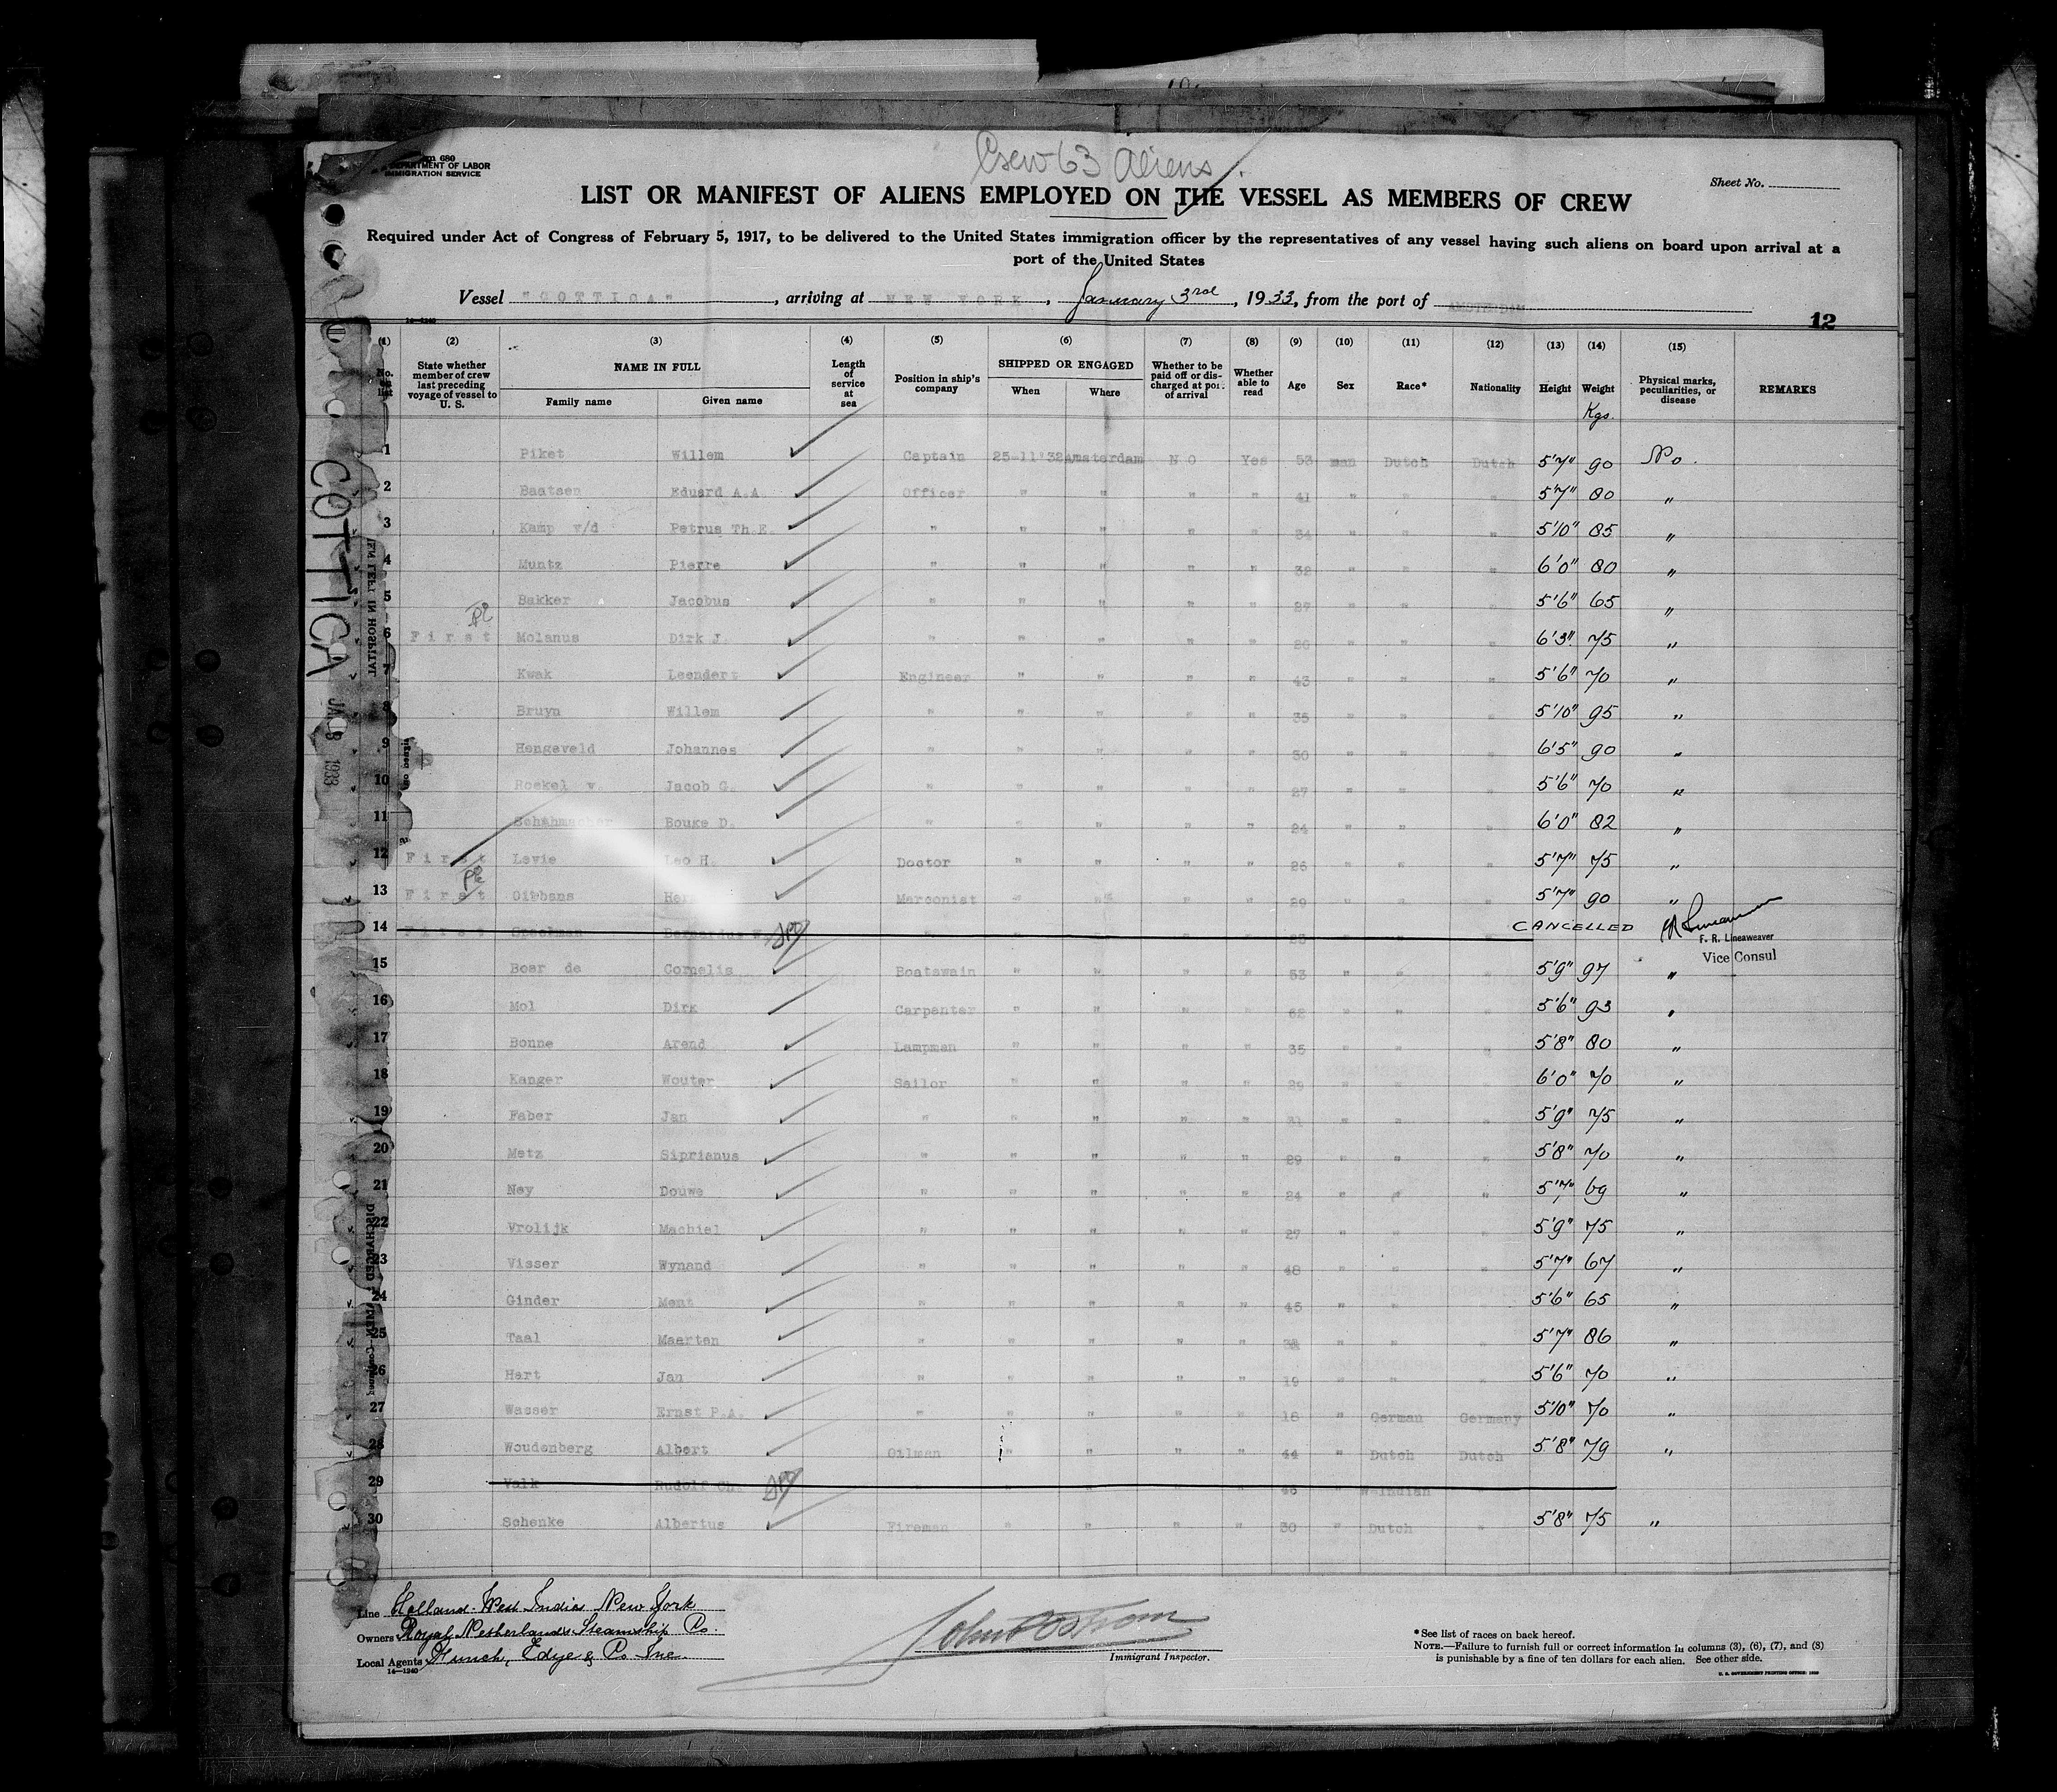 Crew 63 Aliens
Form 680
DEPARTMENT OF LABOR
IMMIGRATION SERVICE
Sheet No.
LIST OR MANIFEST OF ALIENS EMPLOYED ON THE VESSEL AS MEMBERS OF CREW
Required under Act of Congress of February 5, 1917, to be delivered to the United States immigration officer by the representatives of any vessel having such aliens on board upon arrival at a
port of the United States
Vessel "COTTICA", arriving at NEW YORK, January 3rd, 1933, from the port of AMSTERDAM
14—1240
12
(1) (2) (3) (4) (5) (6) (7) (8) (9) (10) (11) (12) (13) (14) (15)
No. on list State whether member of crew last preceding voyage of vessel to U. S. NAME IN FULL Family name Given name Length of service at sea Position in ship's company SHIPPED OR ENGAGED When Where Whether to be paid off or discharged at port of arrival Whether able to read Age Sex Race* Nationality Height Weight Physical marks, peculiarities, or disease REMARKS
Kgs.
1 Piket Willem Captain 25-11"32 Amsterdam NO Yes 53 man Dutch Dutch 5'7" 90 No.
2 Baatsen Eduard A.A. Officer " " " " 41 " " " 5'7" 80 "
3 Kamp v/d Petrus Th.E. " " " " " 34 " " " 5'10" 85 "
4 Muntz Pierre " " " " " 32 " " " 6'0" 80 "
5 Bakker Jacobus " " " " " 27 " " " 5'6" 65 "
6 First Molanus Dirk J. " " " " " 26 " " " 6'3" 75 "
7 Kwak Leendert Engineer " " " " 43 " " " 5'6" 70 "
8 Bruyn Willem " " " " " 35 " " " 5'10" 95 "
9 Hengeveld Johannes " " " " " 30 " " " 6'5" 90 "
10 Roekel v. Jacob G. " " " " " 27 " " " 5'6" 70 "
11 Schuhmacher Bouke D. " " " " " 24 " " " 6'0" 82 "
12 First Levie Leo H. Doctor " " " " 26 " " " 5'7" 75 "
13 First Gibbens Marconist " " " " 29 " " " 5'7" 90 "
14 First Speckman Bernardus " " " " " 23 " " " CANCELLED
F. R. Lineaweaver
Vice Consul
15 Boer de Cornelis Boatswain " " " " 53 " " " 5'9" 97 "
16 Mol Dirk Carpenter " " " " 62 " " " 5'6" 93 "
17 Bonne Arend Lampman " " " " 35 " " " 5'8" 80 "
18 Kanger Wouter Sailor " " " " 29 " " " 6'0" 70 "
19 Faber Jan " " " " " 31 " " " 5'9" 75 "
20 Metz Siprianus " " " " " 29 " " " 5'8" 70 "
21 Ney Douwe " " " " " 24 " " " 5'7" 69 "
22 Vrolijk Machiel " " " " " 27 " " " 5'9" 75 "
23 Visser Wynand " " " " " 48 " " " 5'7" 67 "
24 Ginder Ment " " " " " 45 " " " 5'6" 65 "
25 Taal Maarten " " " " " " " " 5'7" 86 "
26 Hart Jan " " " " " 19 " " " 5'6" 70 "
27 Wasser Ernst P.A. " " " " " 18 " German Germany 5'10" 70 "
28 Woudenberg Albert Oilman " " " " 44 " Dutch Dutch 5'8" 79 "
29 Valk Rudolf Ch. " " " " " 46 " W-Indian
30 Schenke Albertus Fireman " " " " 30 " Dutch " 5'8" 75 "
COTTICA
JAN 3 1933
Line Holland West Indies New York
Owners Royal Netherlands Steamship Co.
Local Agents Funch, Edye & Co Inc.
14—1240
Immigrant Inspector.
* See list of races on back hereof.
NOTE.—Failure to furnish full or correct information in columns (3), (6), (7), and (8)
is punishable by a fine of ten dollars for each alien. See other side.
U. S. GOVERNMENT PRINTING OFFICE